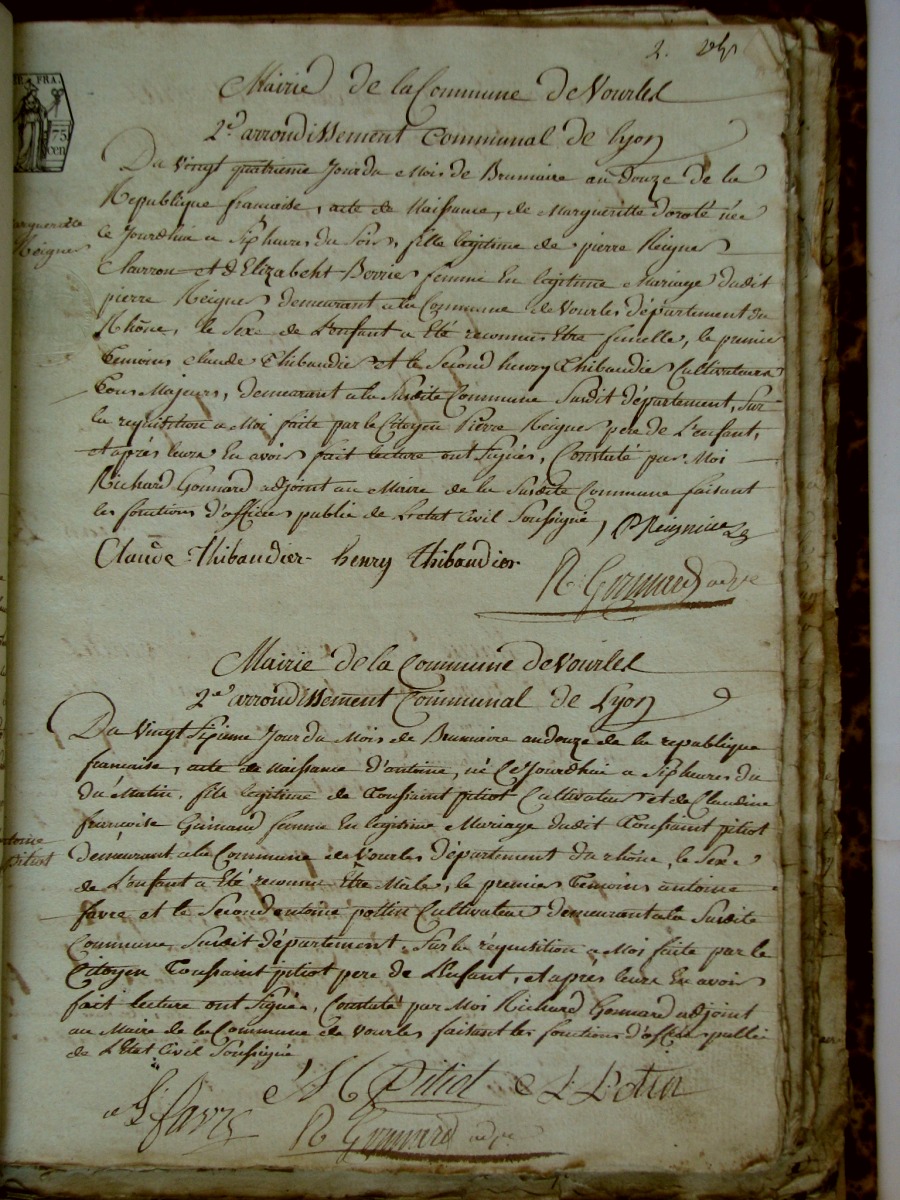 2.
REP. FRA.
75
cen
Mairie de la Commune de Vourles
2e arrondissement Communal de Lyon
Du vingt quatrieme Jour du Mois de Brumaire an Douze de la
Republique francaise, acte de Naissance, de Margueritte doroté née
ce Jourdhui a Six heures du Soir, fille legitime de pierre Reigne
Charron et d'Elizabeht Borrie femme En legitime Mariage dudit
pierre Reigne demeurant a la Commune de Vourles département du
Rhône, le Sexe de L'enfant a Eté reconnu Etre femelle, le premier
Temoins claude Thibaudier et le Second henry Thibaudier Cultivateurs
Tous Majeurs, demeurant a la Susdite Commune Susdit département, Sur
la requisition a Moi faite par le Citoyen Pierre Reigne pere de L'enfant,
et après leurs En avoir fait lecture ont Signés, Constaté par Moi
Richard Gonnard adjoint au Maire de la Susdite Commune faisant
les fonctions d'officier public de L'etat Civil Soussigné,
Claude Thibaudier henry Thibaudier
R Gonnard adjt
Margueritte
Reigne
Mairie de la Commune de Vourles
2e arrondissement Communal de Lyon
Du Vingt Sixieme Jour du Mois de Brumaire an douze de la republique
francaise, acte de Naissance d'antoine, né Ce Jourdhui a Six heures du
du Matin, fils legitime de Toussaint pitiot Cultivateur et de Claudine
francoise Guinand femme En legitime Mariage dudit Toussaint pitiot
demeurant a la Commune de Vourles département du rhône, le Sexe
de L'enfant a Eté reconnu Etre Male, le premier Temoins antoine
favre et le Second antoine pottin Cultivateur demeurant a la Susdite
Commune Susdit département. Sur la réquisition a Moi faite par le
Citoyen Toussaint pitiot pere de L'enfant, et apres leurs En avoir
fait lecture ont Signé, Constaté par Moi Richard Gonnard adjoint
au Maire de la Commune de Vourles faisant les fonctions d'officier public
de L'Etat Civil Soussigné
antoine
pitiot
Pitiot Potin
favre R Gonnard adjt